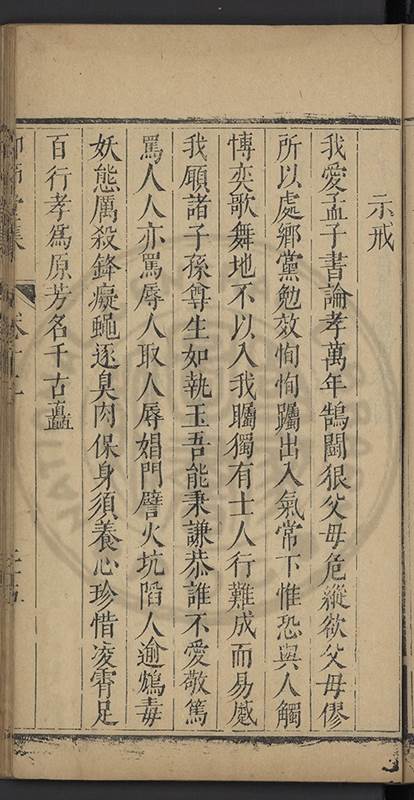 示戒
我愛孟子書論孝萬年鵠鬪狠父毋危縱欲父毋僇
所以處鄉黨勉效恂恂躅出入氣常下惟恐與人觸
博奕歌舞地不以入我矚獨有士人行難成而易蹙
我願諸子孫尊生如執玉吾能秉謙恭誰不愛敬篤
罵人人亦罵辱人取人辱娼門譬火坑陷人逾鴆毒
妖態厲殺鋒癡蠅逐臭肉保身須養心珍惜凌霄足
百行孝爲原芳名千古矗